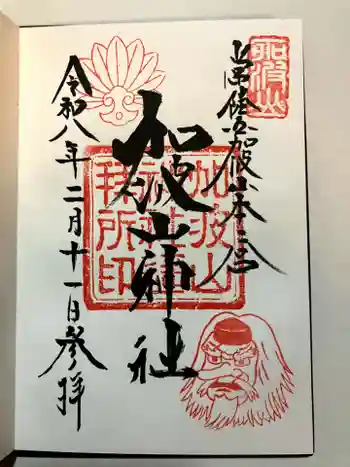 加波山
常陸加波山本宮
加波山神社
加波山
神社
拝所印
令和八年二月十一日参拝